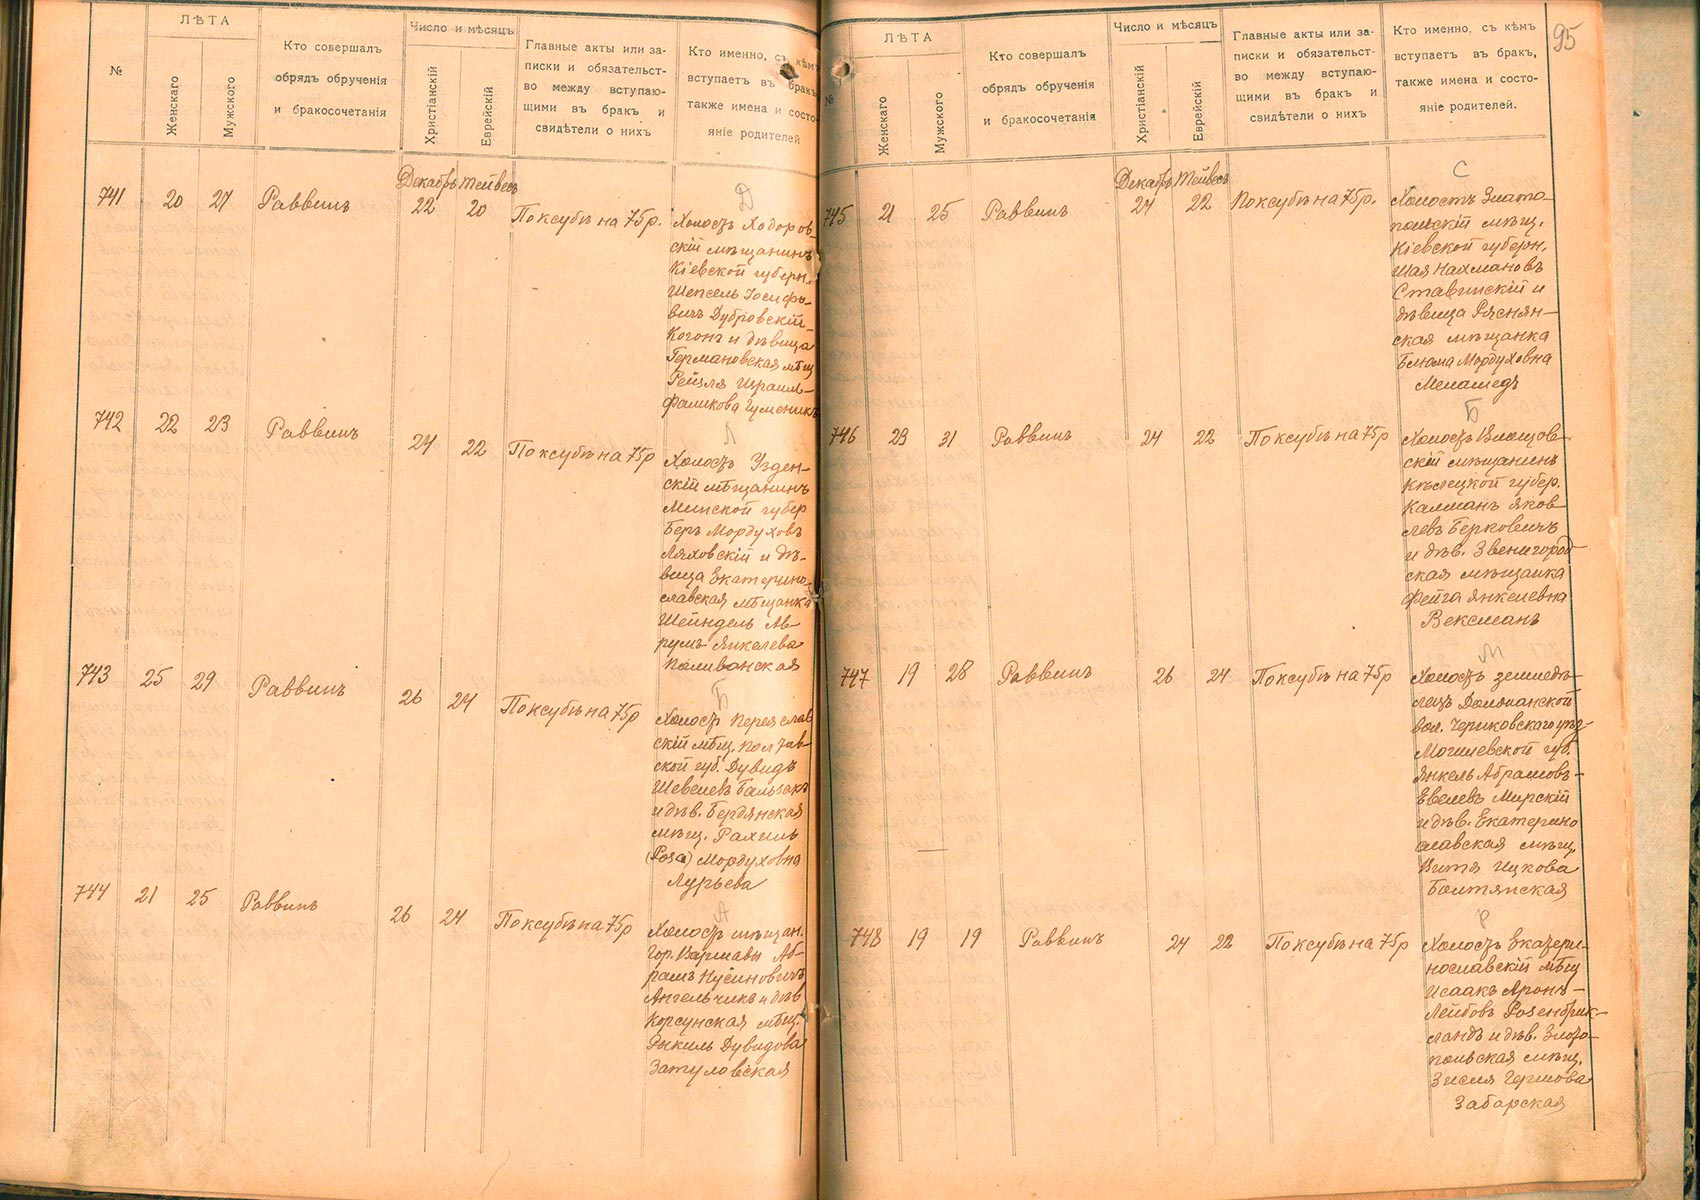 №
ЛѢТА
Женскаго
Мужского
Кто совершалъ
обрядъ обрученія
и бракосочетанія
Число и мѣсяцъ
Христіанскій
Еврейскій
Главные акты или за-
писки и обязательст-
во между вступаю-
щими въ бракъ и
свидѣтели о нихъ
Кто именно, съ кѣмъ
вступаетъ въ бракъ,
также имена и состо-
яніе родителей
741 20 27 Раввинъ
Декабрь Тейвесъ
22 20
По ксубѣ на 75 р.
Д
Холостъ Ходоров-
скій мѣщанинъ
Кіевской губерн.
Шепсель Іосифо-
вичъ Дубровскій-
Когонъ и дѣвица
Германовская мѣщ
Рейзля Израиль-
Фаликова Гуменикъ
742 22 23 Раввинъ 24 22 По ксубѣ на 75 р
Л
Холостъ Узден-
скій мѣщанинъ
Минской губер
Беръ Мордуховъ
Ляховскій и дѣ-
вица Екатерино-
славская мѣщанка
Шейндель Ав-
румъ Янкелева
Поливанская
743 25 29 Раввинъ 26 24 По ксубѣ на 75 р
Б
Холостъ Переяслав
скій мѣщ. Полтав-
ской губ. Дувидъ
Шевелевъ Бальзакъ
и дѣв. Бердянская
мѣщ. Рахиль
(Роза) Мордуховна
Лурьева
744 21 25 Раввинъ 26 24 По ксубѣ на 75 р
А
Холостъ мѣщан.
гор. Варшавы Аб-
рамъ Нусиновичъ
Ангельчикъ и дѣв
Корсунская мѣщ.
Рыкиль Дувидова
Затуловская
95
№
ЛѢТА
Женскаго
Мужского
Кто совершалъ
обрядъ обрученія
и бракосочетанія
Число и мѣсяцъ
Христіанскій
Еврейскій
Главные акты или за-
писки и обязательст-
во между вступаю-
щими въ бракъ и
свидѣтели о нихъ
Кто именно, съ кѣмъ
вступаетъ въ бракъ,
также имена и состо-
яніе родителей.
745 21 25 Раввинъ
Декабрь Тейвесъ
24 22
По ксубѣ на 75 р.
С
Холостъ Злато-
польскій мѣщ.
Кіевской губерн.
Шая Нахмановъ
Ставинскій и
дѣвица Ряснян-
ская мѣщанка
Блюма Мордуховна
Меламедъ
746 23 31 Раввинъ 24 22 По ксубѣ на 75 р
Б
Холостъ Влощов-
скій мѣщанинъ
Кѣлецкой губер.
Калманъ Яков-
левъ Берковичъ
и дѣв. Звенигород-
ская мѣщанка
Фейга Янкелевна
Вексманъ
747 19 28 Раввинъ 26 24 По ксубѣ на 75 р
М
Холостъ земледѣ-
лецъ Долманской
вол. Чериковскаго уѣз-
Могилевской губ.
Янкель Абрамовъ-
Евелевъ Мирскій
и дѣв. Екатерино
славская мѣщ.
Витя Ицкова
Болтянская
748 19 19 Раввинъ 24 22 По ксубѣ на 75 р
Р
Холостъ Екатери-
нославскій мѣщ
Исаакъ Аронъ-
Лейбовъ Розенфрик-
ландъ и дѣв. Злато-
польская мѣщ.
Зисля Гершова
Забарская